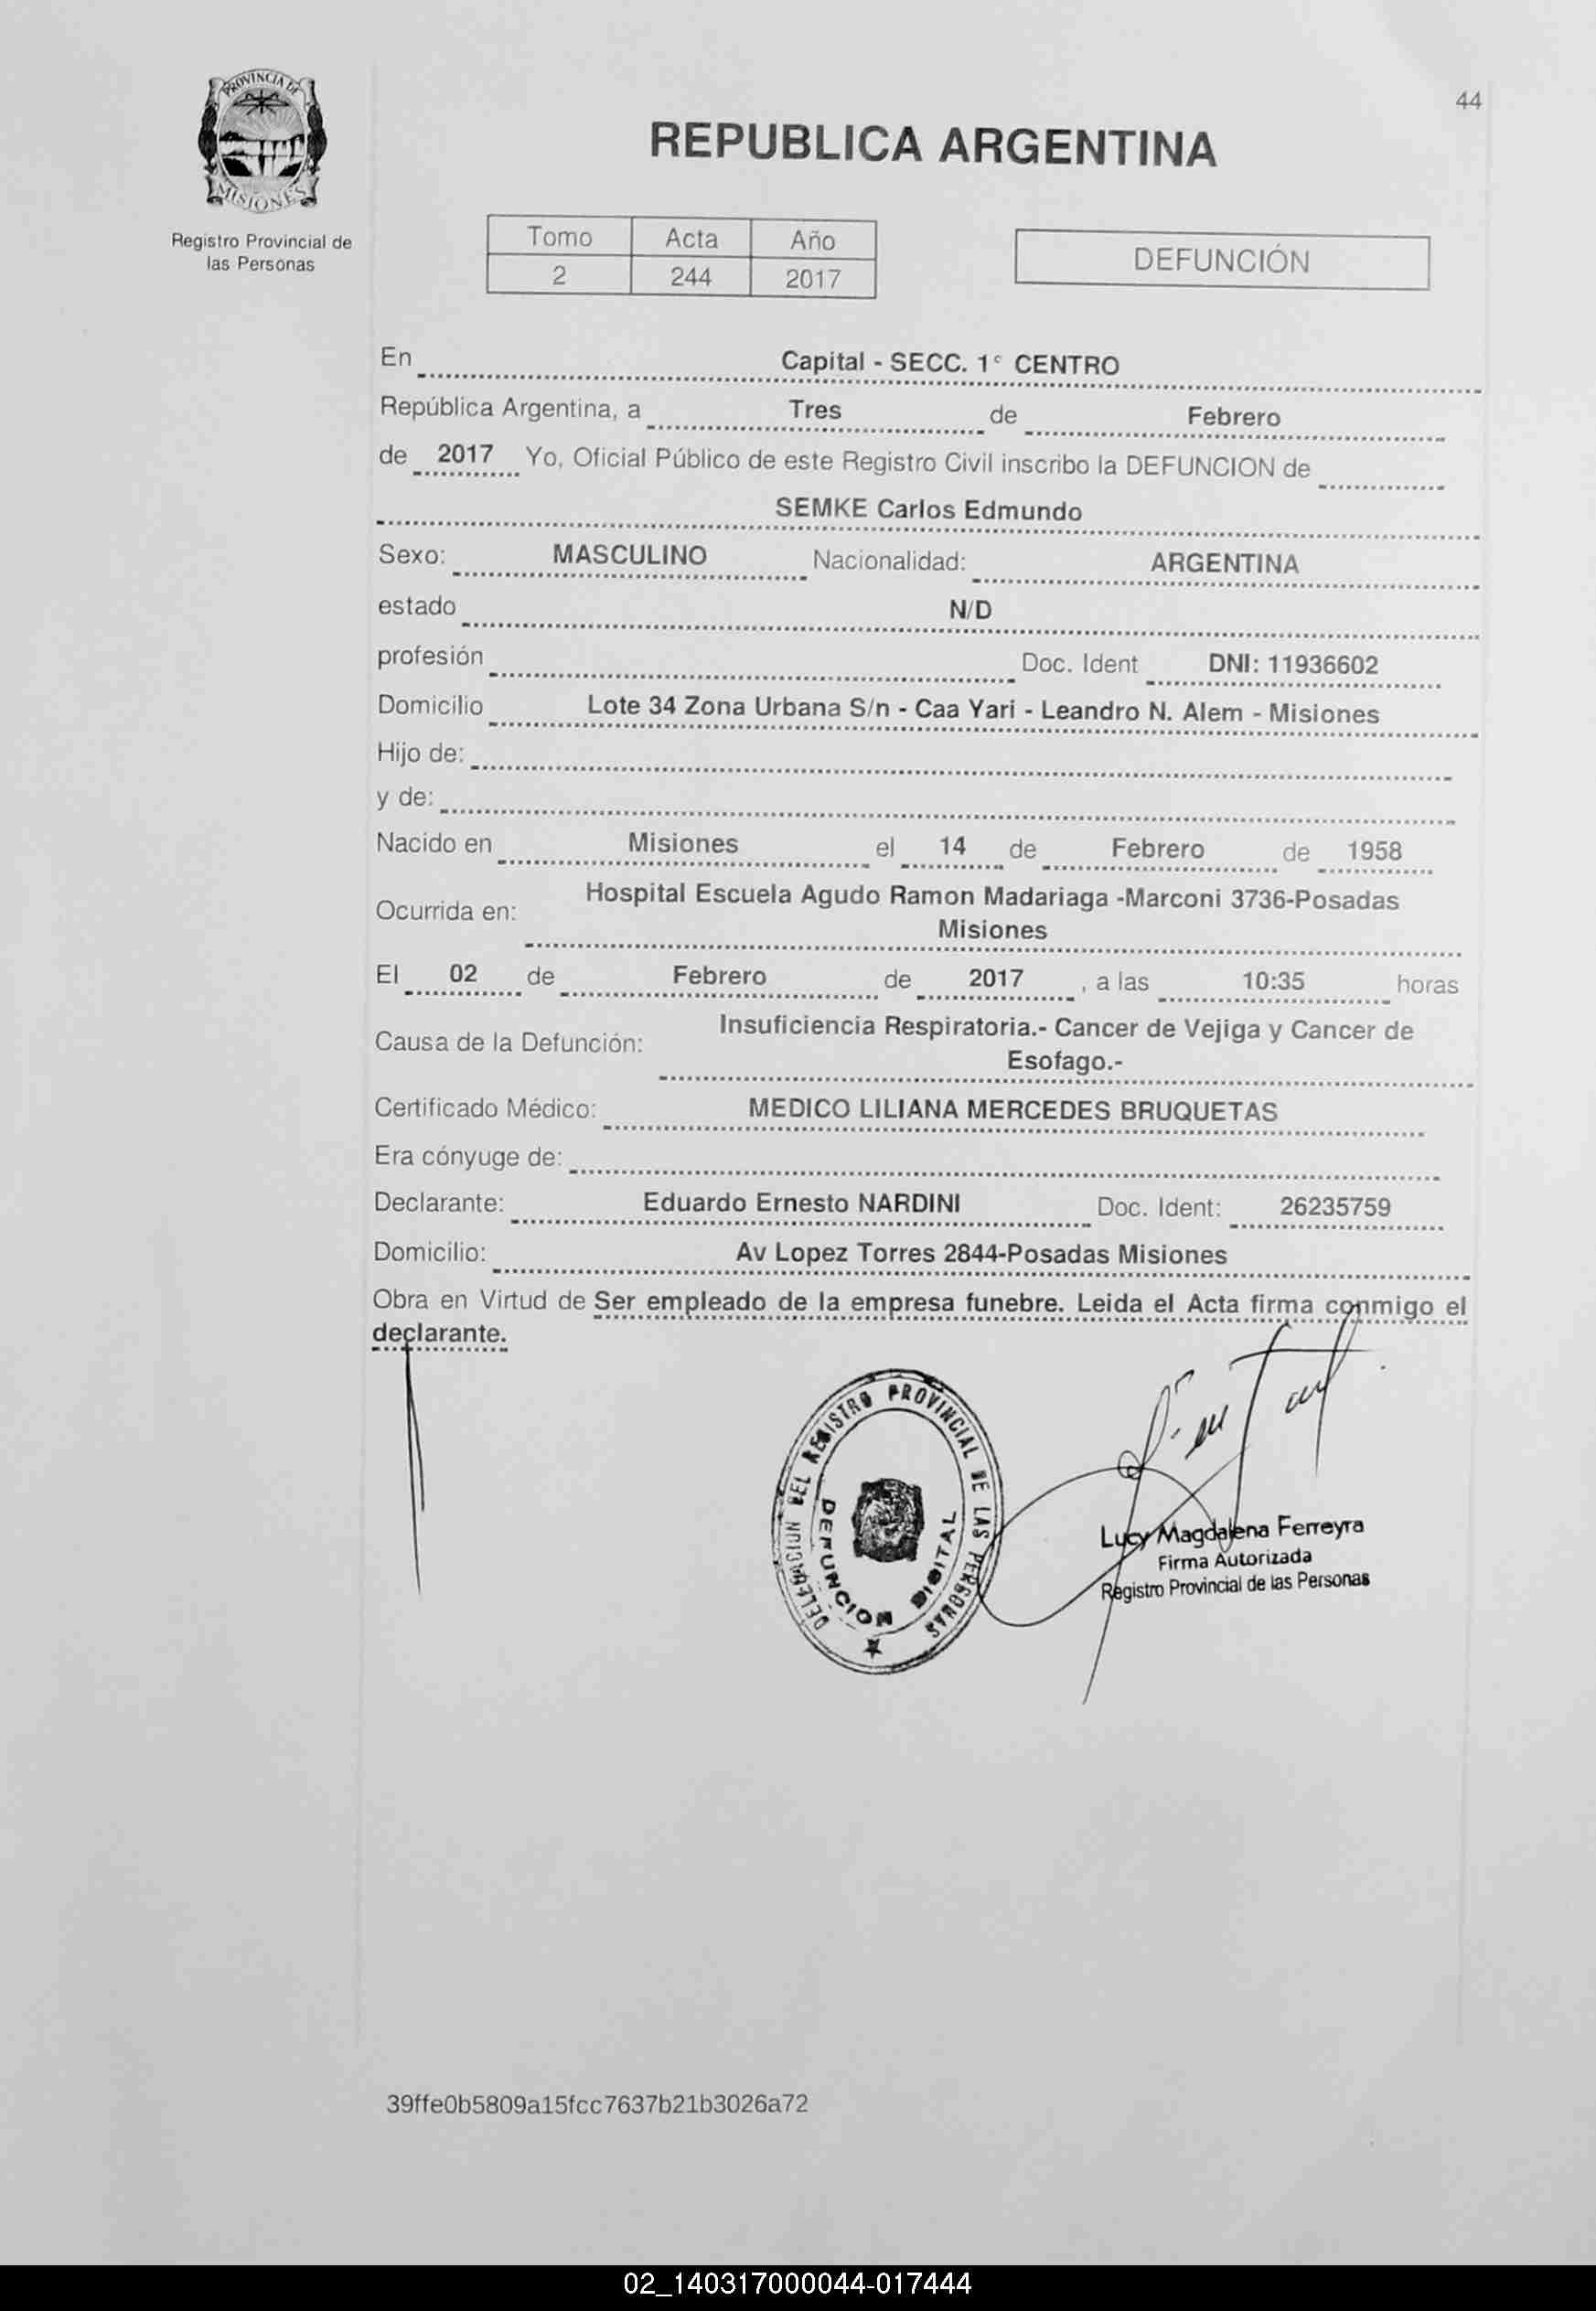 44
PROVINCIA DE
MISIONES
Registro Provincial de
las Personas
REPUBLICA ARGENTINA
Tomo Acta Año
2 244 2017
DEFUNCIÓN
En Capital - SECC. 1° CENTRO
República Argentina, a Tres de Febrero
de 2017 Yo, Oficial Público de este Registro Civil inscribo la DEFUNCION de
SEMKE Carlos Edmundo
Sexo: MASCULINO Nacionalidad: ARGENTINA
estado N/D
profesión Doc. Ident DNI: 11936602
Domicilio Lote 34 Zona Urbana S/n - Caa Yari - Leandro N. Alem - Misiones
Hijo de:
y de:
Nacido en Misiones el 14 de Febrero de 1958
Ocurrida en: Hospital Escuela Agudo Ramon Madariaga -Marconi 3736-Posadas
Misiones
El 02 de Febrero de 2017 , a las 10:35 horas
Causa de la Defunción: Insuficiencia Respiratoria.- Cancer de Vejiga y Cancer de
Esofago.-
Certificado Médico: MEDICO LILIANA MERCEDES BRUQUETAS
Era cónyuge de:
Declarante: Eduardo Ernesto NARDINI Doc. Ident: 26235759
Domicilio: Av Lopez Torres 2844-Posadas Misiones
Obra en Virtud de Ser empleado de la empresa funebre. Leida el Acta firma conmigo el
declarante.
DELEGACION DEL REGISTRO PROVINCIAL DE LAS PERSONAS
DEFUNCION DIGITAL
Lucy Magdalena Ferreyra
Firma Autorizada
Registro Provincial de las Personas
39ffe0b5809a15fcc7637b21b3026a72
02_140317000044-017444